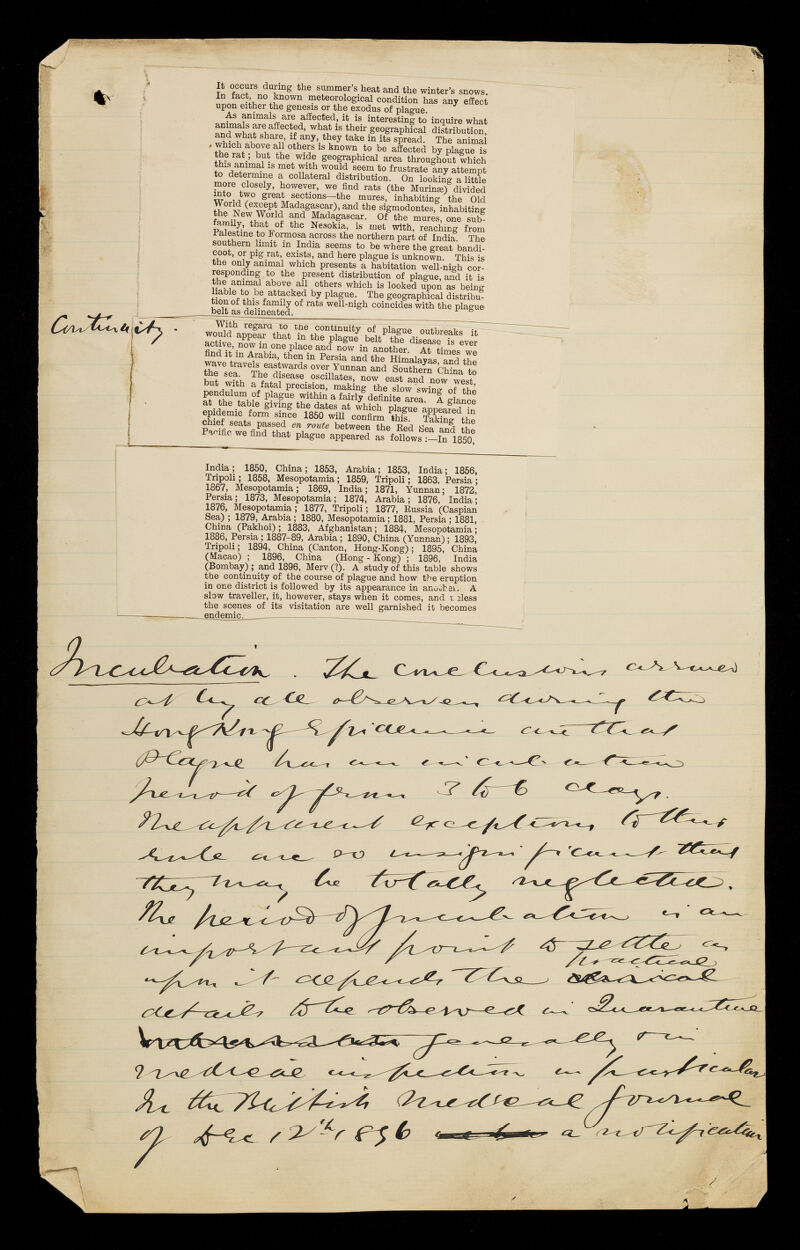 It occurs during the summer's heat and the winter's snows.
In fact, no known meteorological condition has any effect
upon either the genesis or the exodus of plague.
As animals are affected, it is interesting to inquire what
animals are affected, what is their geographical distribution,
and what share, if any, they take in its spread. The animal
which above all others is known to be affected by plague is
the rat; but the wide geographical area throughout which
this animal is met with would seem to frustrate any attempt
to determine a collateral distribution. On looking a little
more closely, however, we find rats (the Murinæ) divided
into two great sections—the mures, inhabiting the Old
World (except Madagascar), and the sigmodontes, inhabiting
the New World and Madagascar. Of the mures, one sub-
family, that of the Nesokia, is met with, reaching from
Palestine to Formosa across the northern part of India. The
southern limit in India seems to be where the great bandi-
coot, or pig rat, exists, and here plague is unknown. This is
the only animal which presents a habitation well-nigh cor-
responding to the present distribution of plague, and it is
the animal above all others which is looked upon as being
liable to be attacked by plague. The geographical distribu-
tion of this family of rats well-nigh coincides with the plague
belt as delineated.
Continuity.
With regard to the continuity of plague outbreaks it
would appear that in the plague belt the disease is ever
active, now in one place and now in another. At times we
find it in Arabia, then in Persia and the Himalayas, and the
wave travels eastwards over Yunnan and Southern China to
the sea. The disease oscillates, now east and now west,
but with a fatal precision, making the slow swing of the
pendulum of plague within a fairly definite area. A glance
at the table giving the dates at which plague appeared in
epidemic form since 1850 will confirm this. Taking the
chief seats passed en route between the Red Sea and the
Pacific we find that plague appeared as follows:—In 1850,
India; 1850, China; 1853, Arabia; 1853, India; 1856,
Tripoli; 1858, Mesopotamia; 1859, Tripoli; 1863. Persia;
1867, Mesopotamia; 1869, India; 1871, Yunnan; 1872,
Persia; 1873, Mesopotamia; 1874, Arabia; 1876, India;
1876, Mesopotamia; 1877, Tripoli; 1877, Russia (Caspian
Sea); 1879, Arabia; 1880, Mesopotamia; 1881, Persia; 1881,
China (Pakhoi); 1883, Afghanistan; 1884, Mesopotamia;
1886, Persia; 1887-89, Arabia; 1890, China (Yunnan); 1893,
Tripoli; 1894, China (Canton, Hong-Kong); 1895, China
(Macao); 1896, China (Hong-Kong); 1896, India
(Bombay); and 1896, Merv (?). A study of this table shows
the continuity of the course of plague and how the eruption
in one district is followed by its appearance in another. A
slow traveller, it, however, stays when it comes, and unless
the scenes of its visitation are well garnished it becomes
endemic.
Incubation. The conclusions arrived
at by all observers during the
Hong Kong Epidemic are that
Plague has an incubation
period of from 3 to 6 days.
The apparent exceptions to this
rule are so insignificant that
they may be totally neglected.
The period of Incubation is an
important point to settle as
practical
upon it depends the
details to be observed in Quarantine
generally & in
medical inspection in particular
In the British Medical Journal
of Dec 12th 1896 a notification